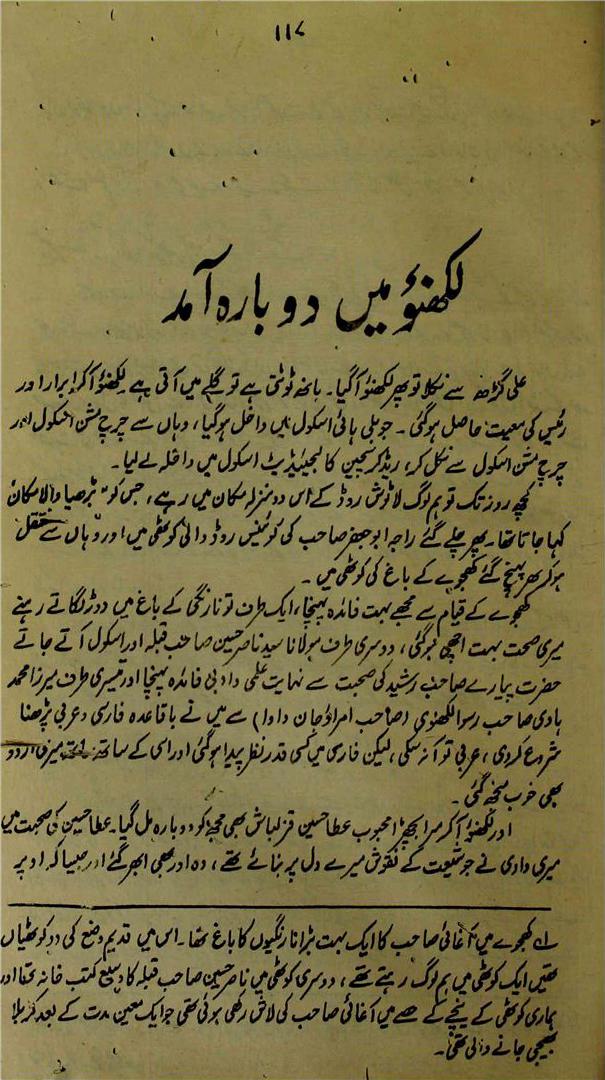 ۱۱۷
لکھنؤ میں دوبارہ آمد
علی گڑھ سے نکلا تو پھر لکھنؤ آ گیا۔ بانھ ٹوٹتی ہے تو گلے میں آتی ہے۔ لکھنؤ آکر ابرار اور
رئیس کی معیت حاصل ہوگئی۔ جوبلی ہائی اسکول میں داخل ہوگیا، وہاں سے چرچ مشن اسکول اور
چرچ مشن اسکول سے نکل کر، ریڈ کرسچین کالجیئیٹ اسکول میں داخلہ لے لیا۔
کچھ روز تک تو ہم لوگ لاٹوش روڈ کے اس دو منزلہ مکان میں رہے، جس کو "بڑھیا والا مکان"
کہا جاتا تھا۔ پھر چلے گئے راجہ ابو جعفر صاحب کی کوئینس روڈ والی کوٹھی میں اور وہاں سے منتقل
ہو کر پھر پہنچ گئے کھجوے کے باغ کی کوٹھی میں۔
کھجوے کے قیام سے مجھے بہت فائدہ پہنچا، ایک طرف تو نارنگی کے باغ میں دوڑ لگاتے رہنے
میری صحت بہت اچھی ہوگئی، دوسری طرف مولانا سید ناصر حسین صاحب قبلہ اور اسکول آتے جاتے
حضرت پیارے صاحب رشید کی صحبت سے نہایت علمی و ادبی فائدہ پہنچا اور تیسری طرف میرزا محمد
ہادی صاحب رسوا لکھنوی (صاحب امراؤ جان ادا) سے میں نے باقاعدہ فارسی و عربی پڑھنا
شروع کر دی، عربی تو آ نہ سکی، لیکن فارسی میں کسی قدر نظر پیدا ہوگئی اور اسی کے ساتھ میری اردو
بھی خوب منجھ گئی۔
اور لکھنؤ آکر میرا بچھڑا محبوب عطا حسین قزلباش بھی مجھ کو دوبارہ مل گیا۔ عطا حسین کی صحبت میں
میری دادی نے جو شیعت کے نقوش میرے دل پر بنائے تھے، وہ اور بھی ابھر گئے اور جیسا کہ اوپر
لے کھجوے میں آغائی صاحب کا ایک بہت بڑا نارنگیوں کا باغ تھا۔ اس میں قدیم وضع کی دو کوٹھیاں
تھیں ایک کوٹھی میں ہم لوگ رہتے تھے، دوسری کوٹھی میں ناصر حسین صاحب قبلہ کا وسیع کتب خانہ تھا اور
ہماری کوٹھی کے نیچے کے حصے میں آغائی صاحب کی لاش رکھی ہوئی تھی جو ایک معین مدت کے بعد کربلا
بھیجی جانے والی تھی۔